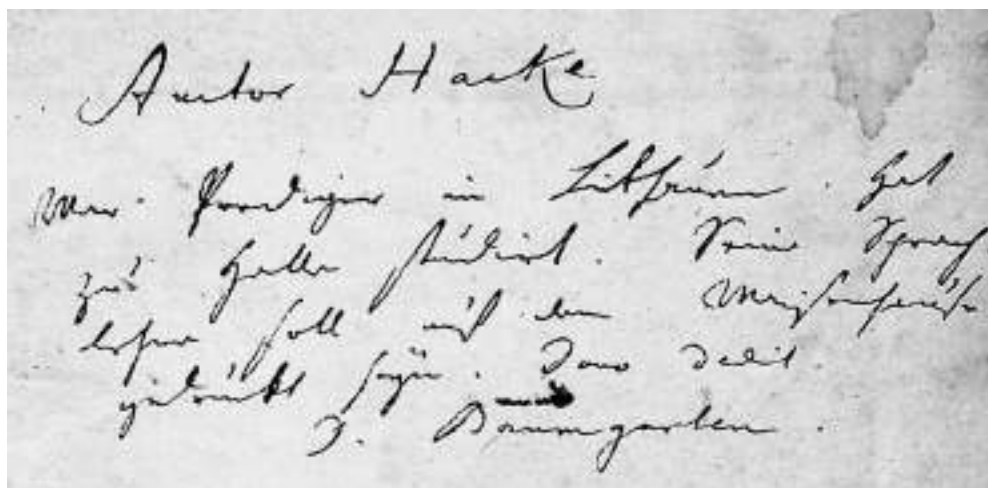 Auctor Hacke
War Prediger in Litthauen. hat
zu Halle studirt. Seine Sprach
lehre soll auf dem Waysenhause
gedruckt seyn. Dono dedit.
Baumgarten.